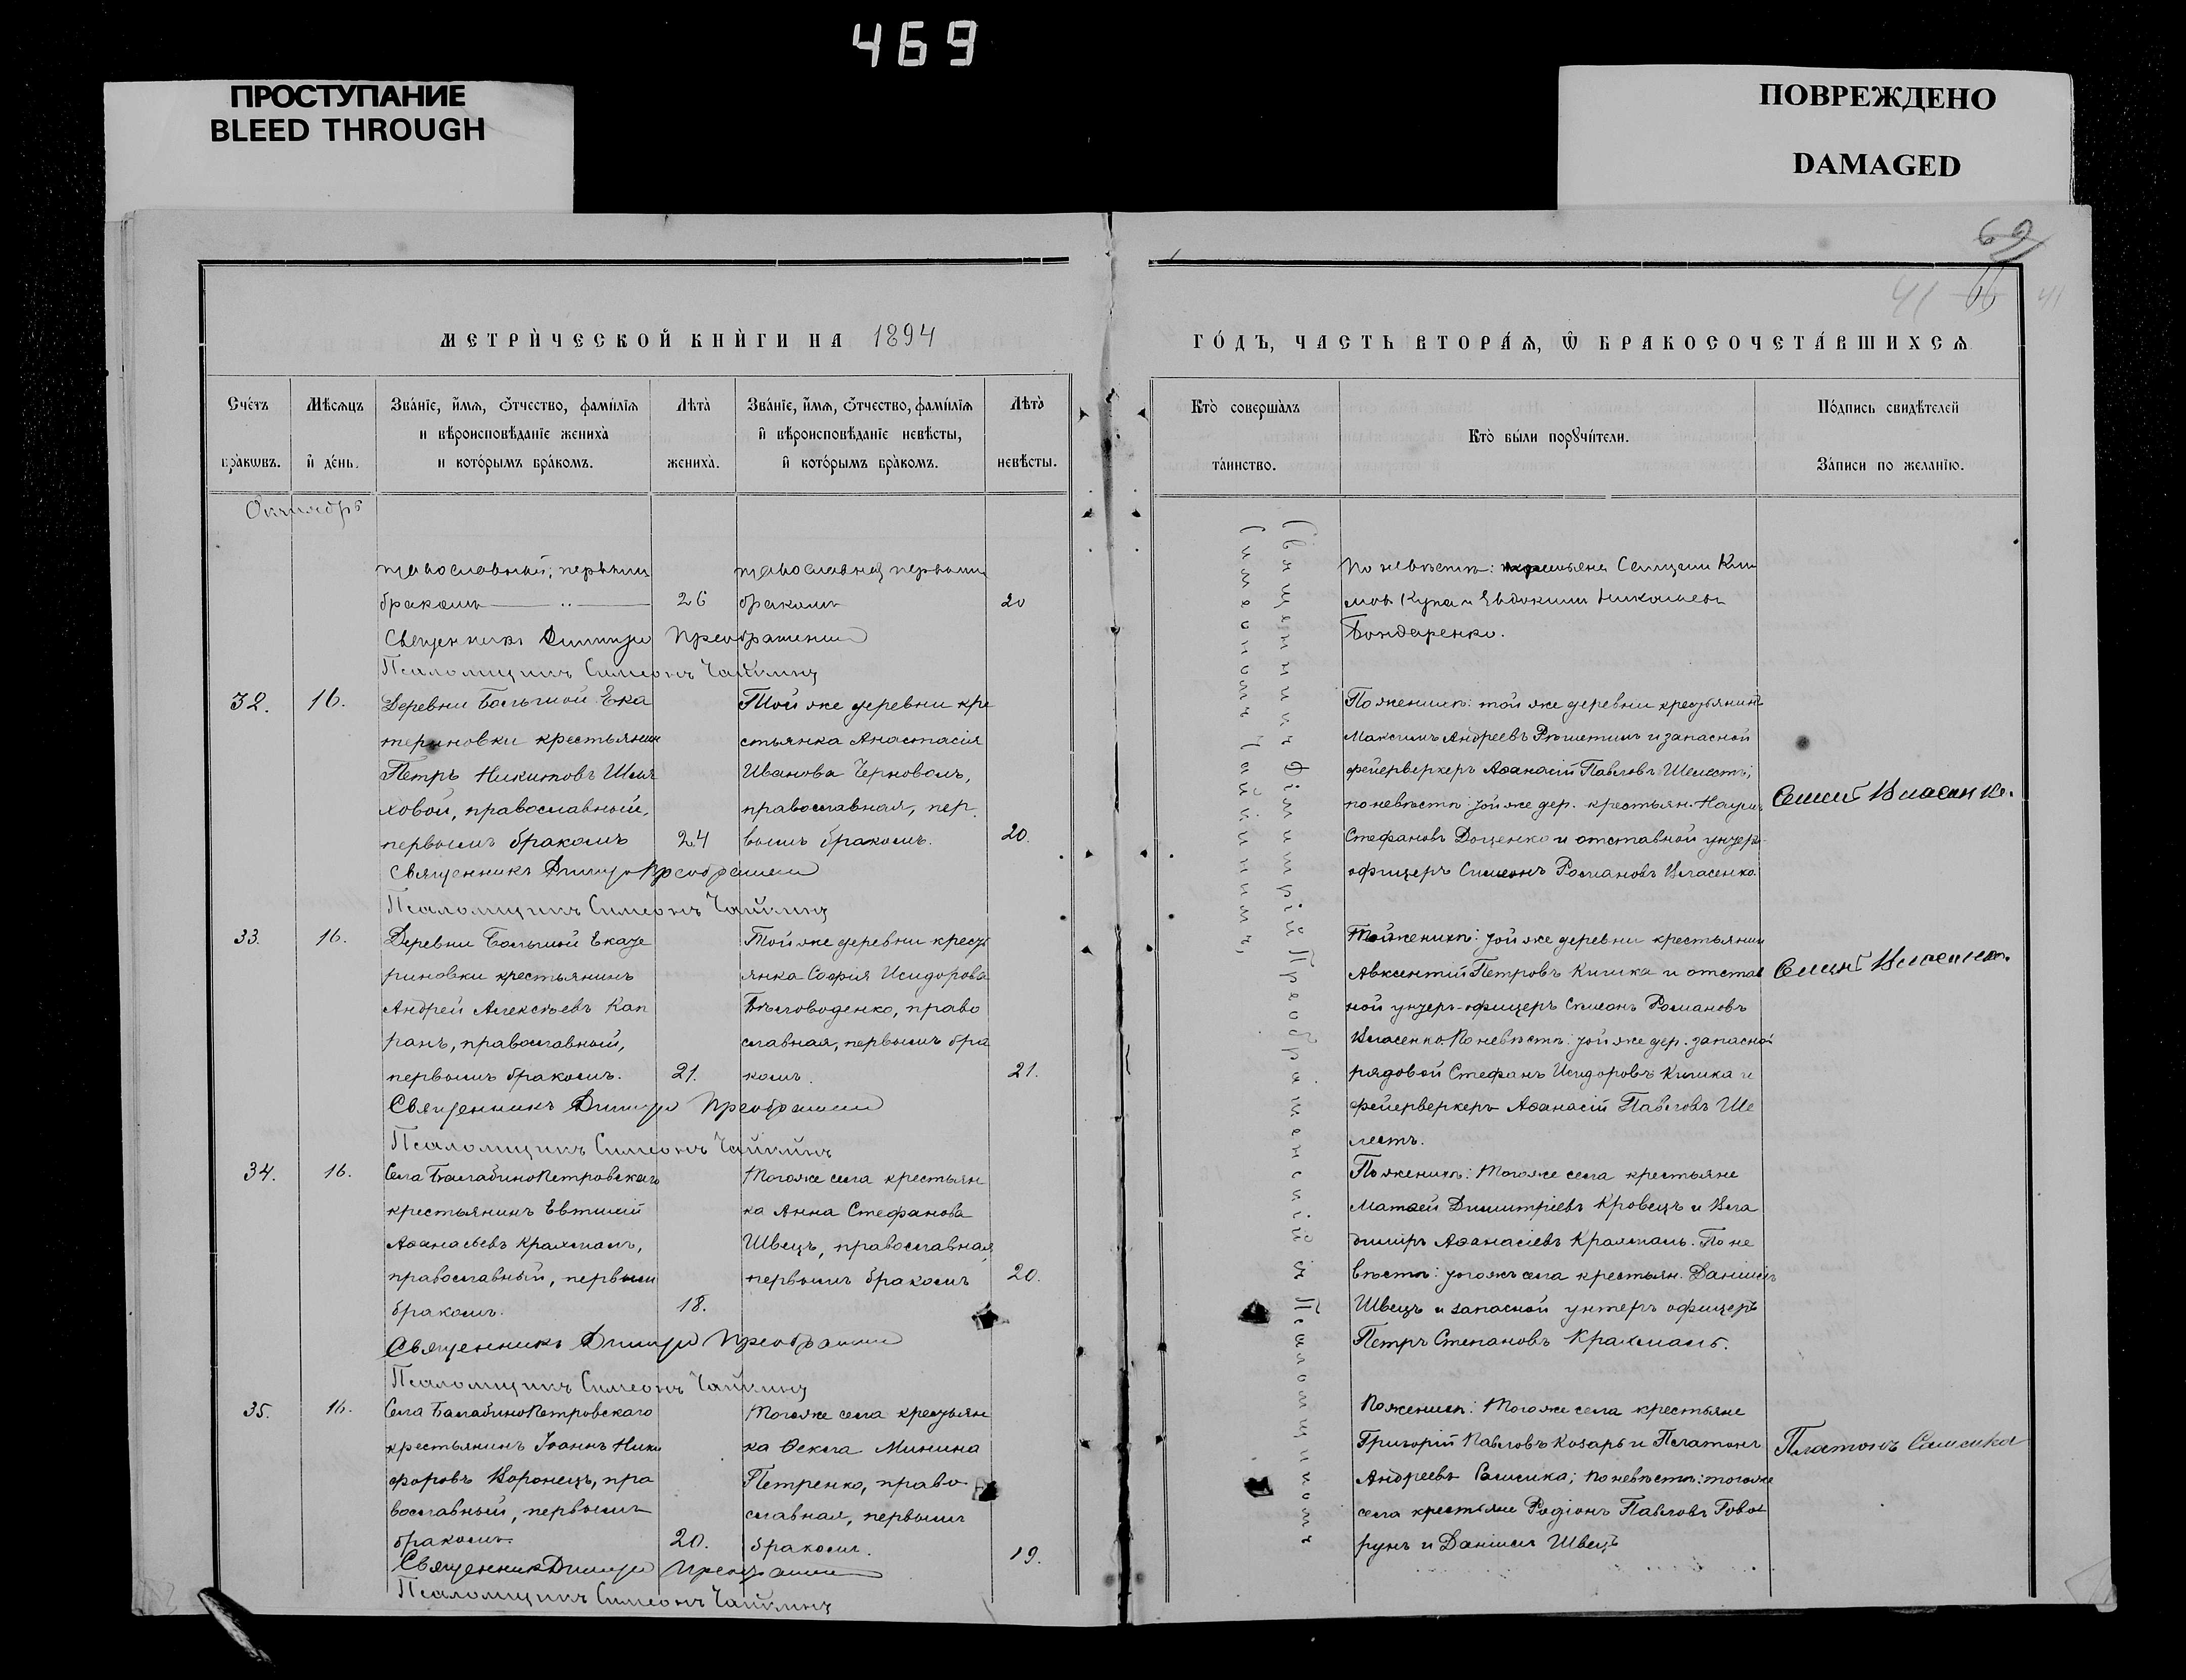 469
ПРОСТУПАНИЕ
BLEED THROUGH
ПОВРЕЖДЕНО
DAMAGED
69
41 66 41
МЕТРИ́ЧЕСКОЙ КНИ́ГИ НА 1894
Сче́тъ бра́кѡвъ.
Мѣ́сѧцъ и҆ де́нь.
Зва́нїе, и҆́мѧ, ѻ҆́тчество, фами́лїѧ
и вѣроисповѣ́данїе жениха̀
и кото́рымъ бра́комъ.
Лѣта̀ жениха̀.
Зва́нїе, и҆́мѧ, ѻ҆́тчество, фами́лїѧ
и҆ вѣроисповѣ́данїе невѣ́сты,
и҆ кото́рымъ бра́комъ.
Лѣта̀ невѣ́сты.
Октябрь
православный, первымъ
бракомъ 26
православная первымъ
бракомъ 20
Священникъ Димитрій Преображенскій
Псаломщикъ Симеонъ Чайкинъ
32. 16.
Деревни Большой Ека
териновки крестьянинъ
Петръ Никитовъ
ховой, православный,
первымъ бракомъ 24
Той же деревни кре
стьянка Анастасія
Иванова Черноволъ,
православная, пер
вымъ бракомъ. 20.
Священникъ Димитрій Преображенскій
Псаломщикъ Симеонъ Чайкинъ
33. 16.
Деревни Большой Екате
риновки крестьянинъ
Андрей Алексѣевъ Кап
ранъ, православный,
первымъ бракомъ. 21.
Той же деревни кресть
янка Софія Исидорова
Бѣловоденко, право
славная, первымъ бра
комъ. 21.
Священникъ Димитрій Преображенскій
Псаломщикъ Симеонъ Чайкинъ
34. 16.
Села БалабиноПетровскаго
крестьянинъ Евтихій
Аѳанасьевъ Крахмаль,
православный, первымъ
бракомъ. 18.
Тогоже села крестьян
ка Анна Стефанова
Швецъ, православная,
первымъ бракомъ 20.
Священникъ Димитрій Преображенскій
Псаломщикъ Симеонъ Чайкинъ
35. 16.
Села БалабиноПетровскаго
крестьянинъ Іоаннъ Ники
форовъ Воронецъ, пра
вославный, первымъ
бракомъ. 20.
Тогоже села крестьян
ка Ѳекла Минина
Петренко, право
славная, первымъ
бракомъ. 19.
Священникъ Димитрій Преображенскій
Псаломщикъ Симеонъ Чайкинъ
ГО́ДЪ, ЧАСТЬ ВТОРА́Ѧ, Ѽ БРАКОСОЧЕТА́ВШИХСѦ
Кто̀ соверша́лъ та́инство.
Кто̀ бы́ли порꙋчи́тели.
По́дпись свидѣ́телей За́писи по жела́нїю.
Священникъ Димитрій Преображенскій съ Псаломщикомъ
Симеономъ Чайкинымъ,
По невѣстѣ: крестьяне Кли
мовъ Купа и Евдокимъ Николаевъ
Бондаренко.
По женихѣ: той же деревни крестьянинъ
Максимъ Андреевъ Рѣшетилъ и запасной
фейерверкеръ Аѳанасій Павловъ Шелестъ;
по невѣстѣ: той же дер. крестьян. Наумъ
Стефановъ Доценко и отставной унтеръ-
офицеръ Симеонъ Романовъ Власенко.
Семенъ Власенко.
женихѣ: той же деревни крестьянинъ
Авксентій Петровъ Кишка и отстав
ной унтеръ-офицеръ Симеонъ Романовъ
Власенко. По невѣстѣ: той же дер. запасной
рядовой Стефанъ Исидоровъ Кишка и
фейерверкеръ Аѳанасій Павловъ Ше
лестъ.
Семенъ Власенко.
По женихѣ: Тогоже села крестьяне
Матѳей Димитріевъ Кровецъ и Вла
диміръ Аѳанасіевъ Крахмаль. По не
вѣстѣ: тогожъ села крестьян. Даніилъ
Швецъ и запасной унтеръ офицеръ
Петръ Степановъ Крахмаль.
По женихѣ: Тогоже села крестьяне
Григорій Павловъ Козарь и Платонъ
Андреевъ Самсика; по невѣстѣ: тогоже
села крестьяне Родіонъ Павловъ Гово
рунъ и Даніилъ Швецъ
Платонъ Самсика